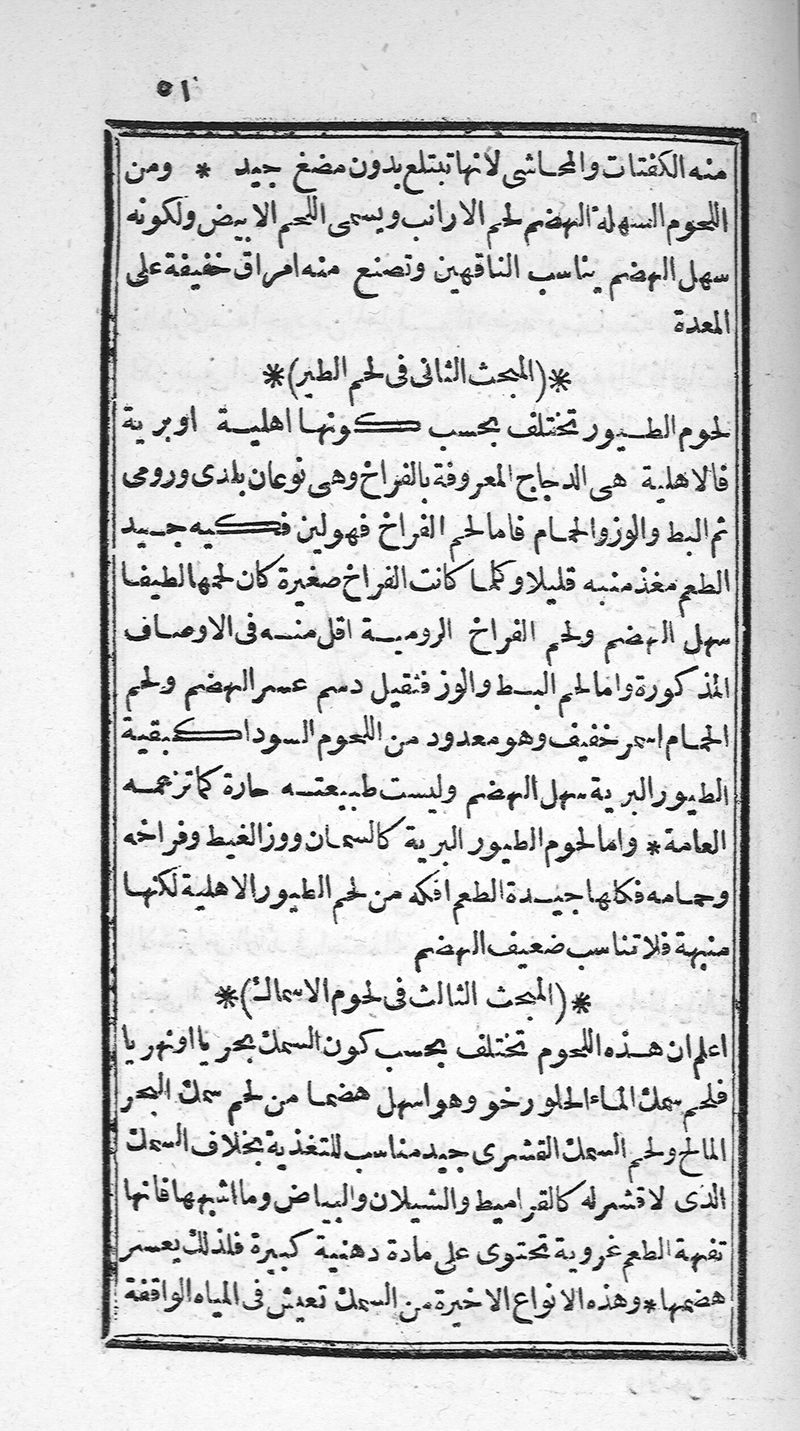 ٥١
منه الكفتات والمحاشى لانها تبتلع بدون مضغ جيد * ومن
اللحوم السهلة الهضم لحم الارانب ويسمى اللحم الابيض ولكونه
سهل الهضم يناسب الناقهين وتصنع منه امراق خفيفة على
المعدة
*(المبحث الثانى فى لحم الطير)*
لحوم الطيور تختلف بحسب كونها اهلية او برية
فالاهلية هى الدجاج المعروفة بالفراخ وهى نوعان بلدى ورومى
ثم البط والوز والحمام فاما لحم الفراخ فهو لين فكيه جيد
الطعم مغذ منبه قليلا وكلما كانت الفراخ صغيرة كان لحمها لطيفا
سهل الهضم ولحم الفراخ الرومية اقل منه فى الاوصاف
المذكورة واما لحم البط والوز فثقيل دسم عسر الهضم ولحم
الحمام اسمر خفيف وهو معدود من اللحوم السودا كبقية
الطيور البرية سهل الهضم وليست طبيعته حارة كما تزعمه
العامة * واما لحوم الطيور البرية كالسمان ووز الغيط وفراخه
وحمامه فكلها جيدة الطعم افكه من لحم الطيور الاهلية لكنها
منبهة فلا تناسب ضعيف الهضم
*(المبحث الثالث فى لحوم الاسماك)*
اعلم ان هذه اللحوم تختلف بحسب كون السمك بحريا او نهريا
فلحم سمك الماء الحلو رخو وهو اسهل هضما من لحم سمك البحر
المالح ولحم السمك القشرى جيد مناسب للتغذية بخلاف السمك
الذى لا قشر له كالقراميط والشيلان والبياض وما اشبهها فانها
تفهة الطعم غروية تحتوى على مادة دهنية كبيرة فلذلك يعسر
هضمها * وهذه الانواع الاخيرة من السمك تعيش فى المياه الواقفة